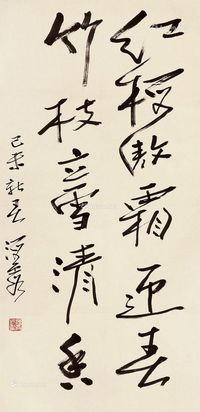 红梅傲霜迎春
竹枝立雪清香
己未新春